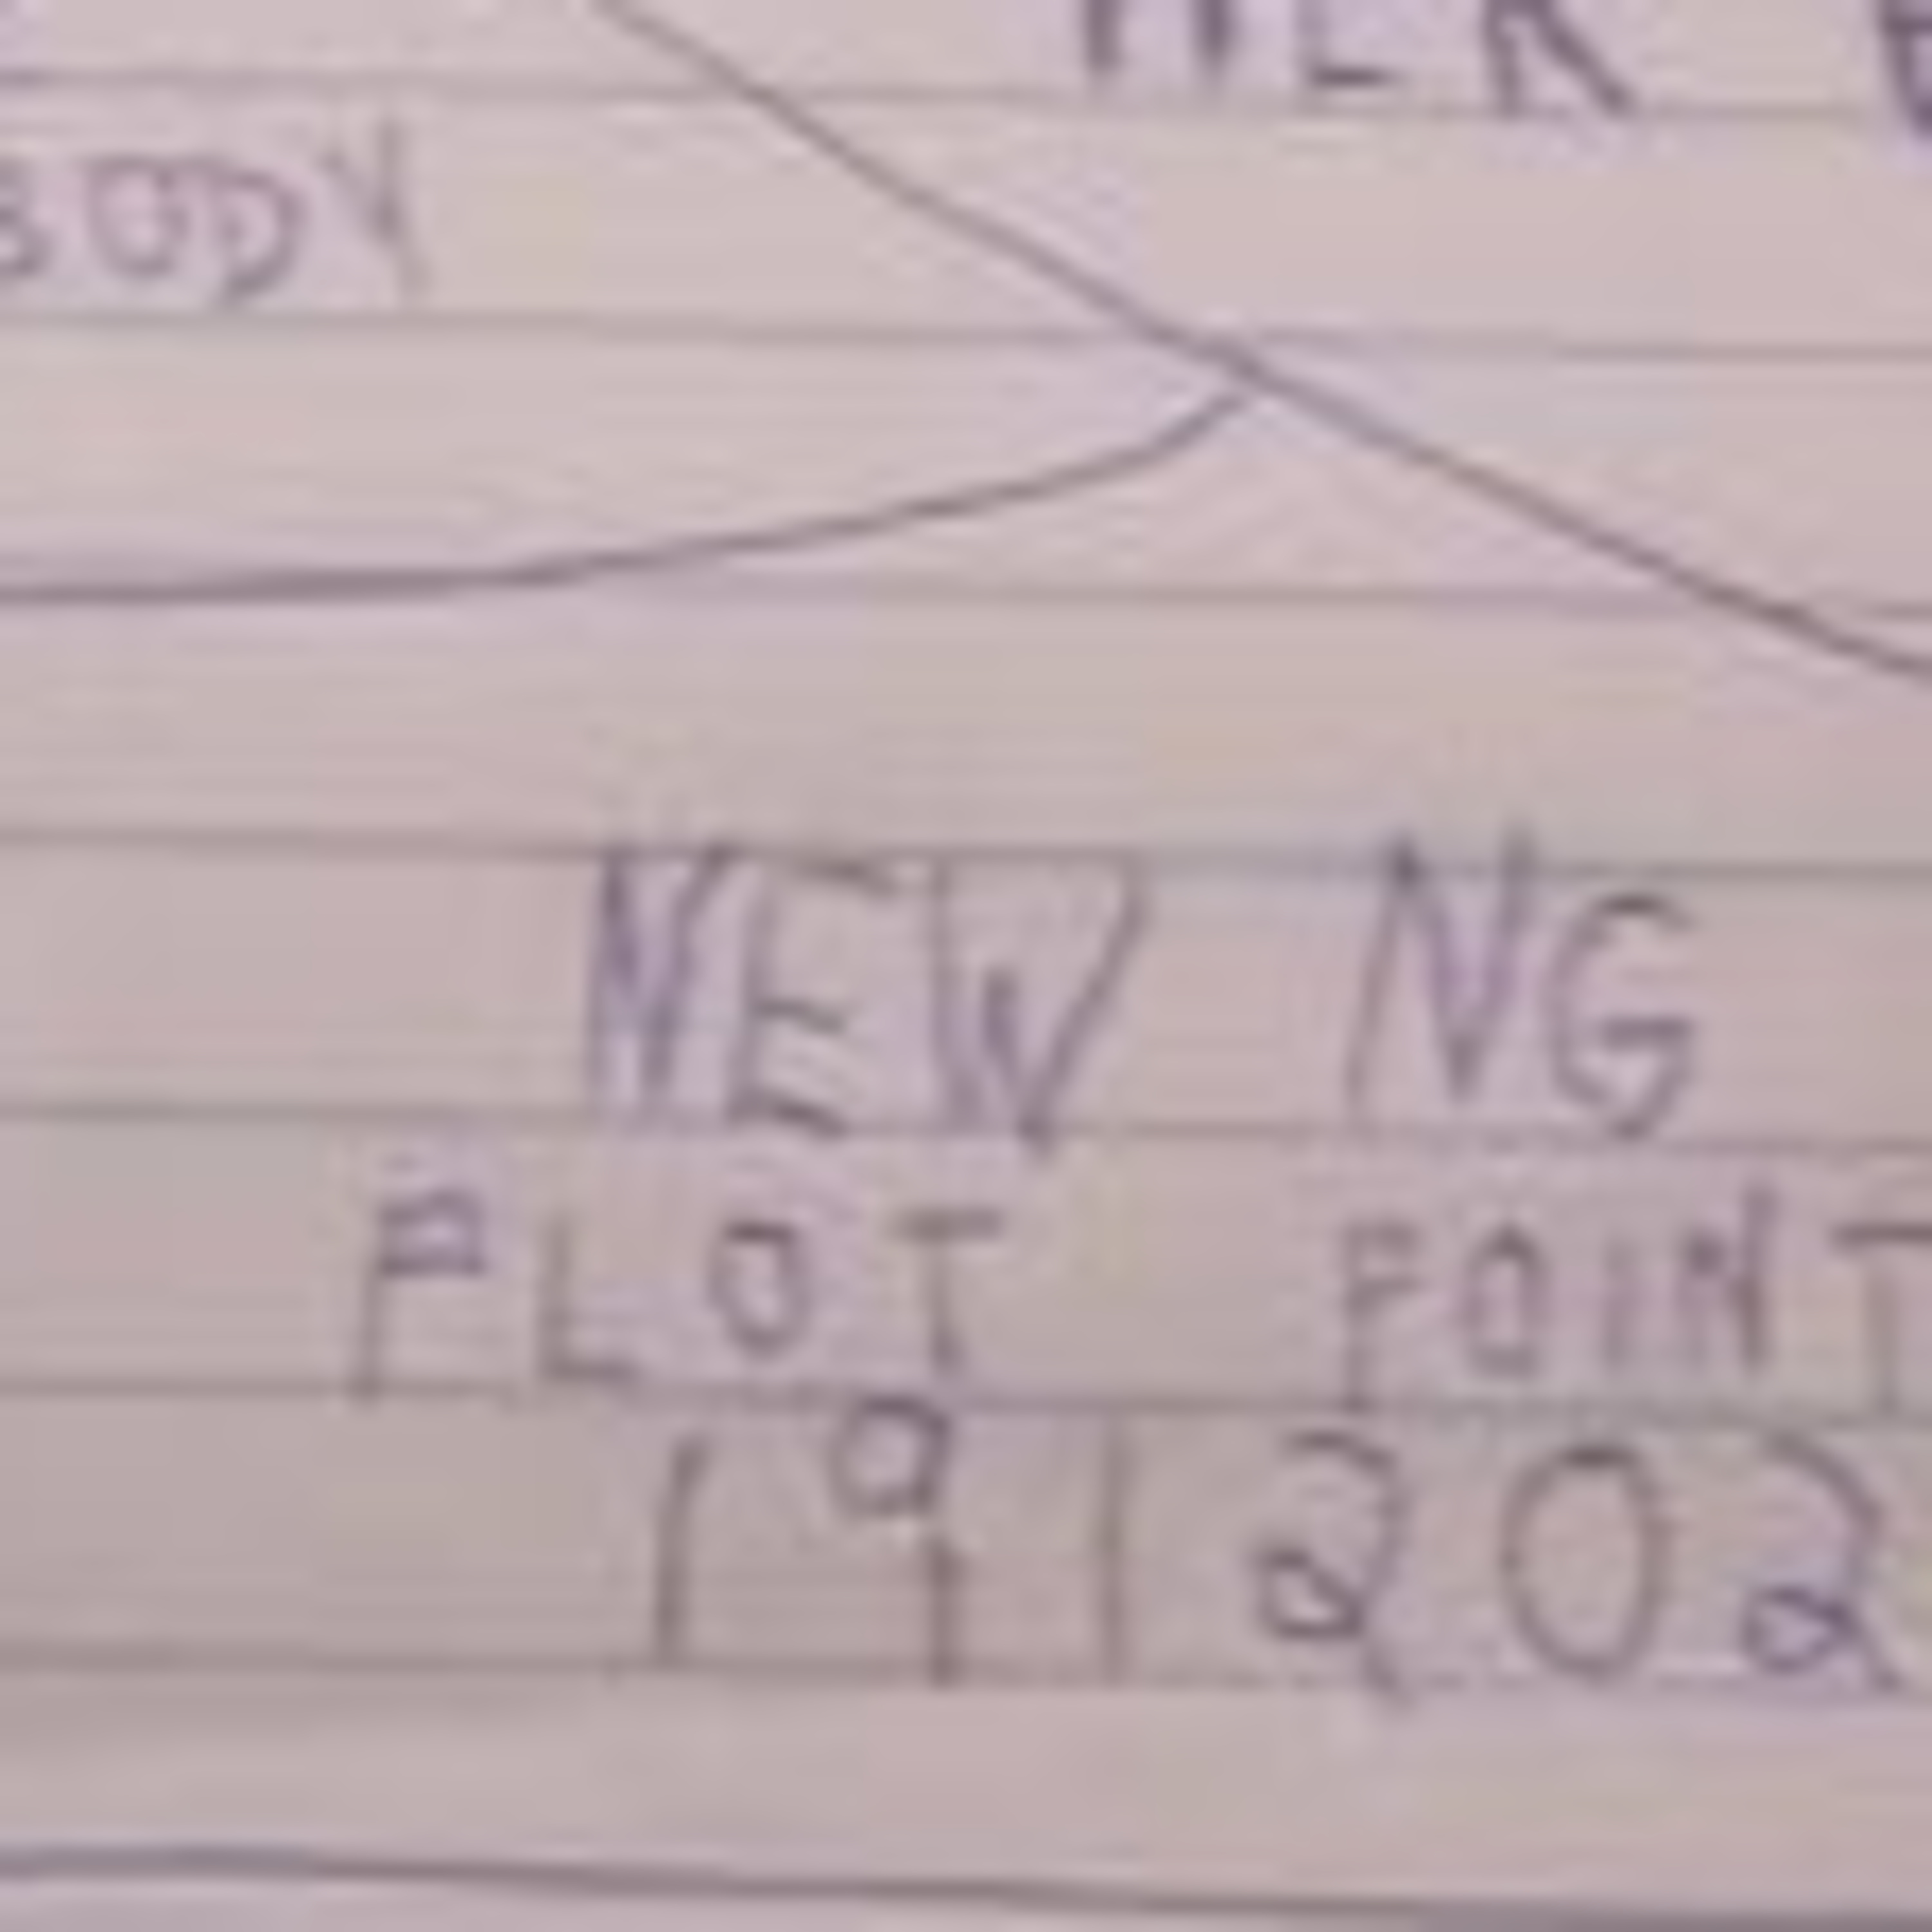 BODY
NEW NG
PLOT POINT
191202